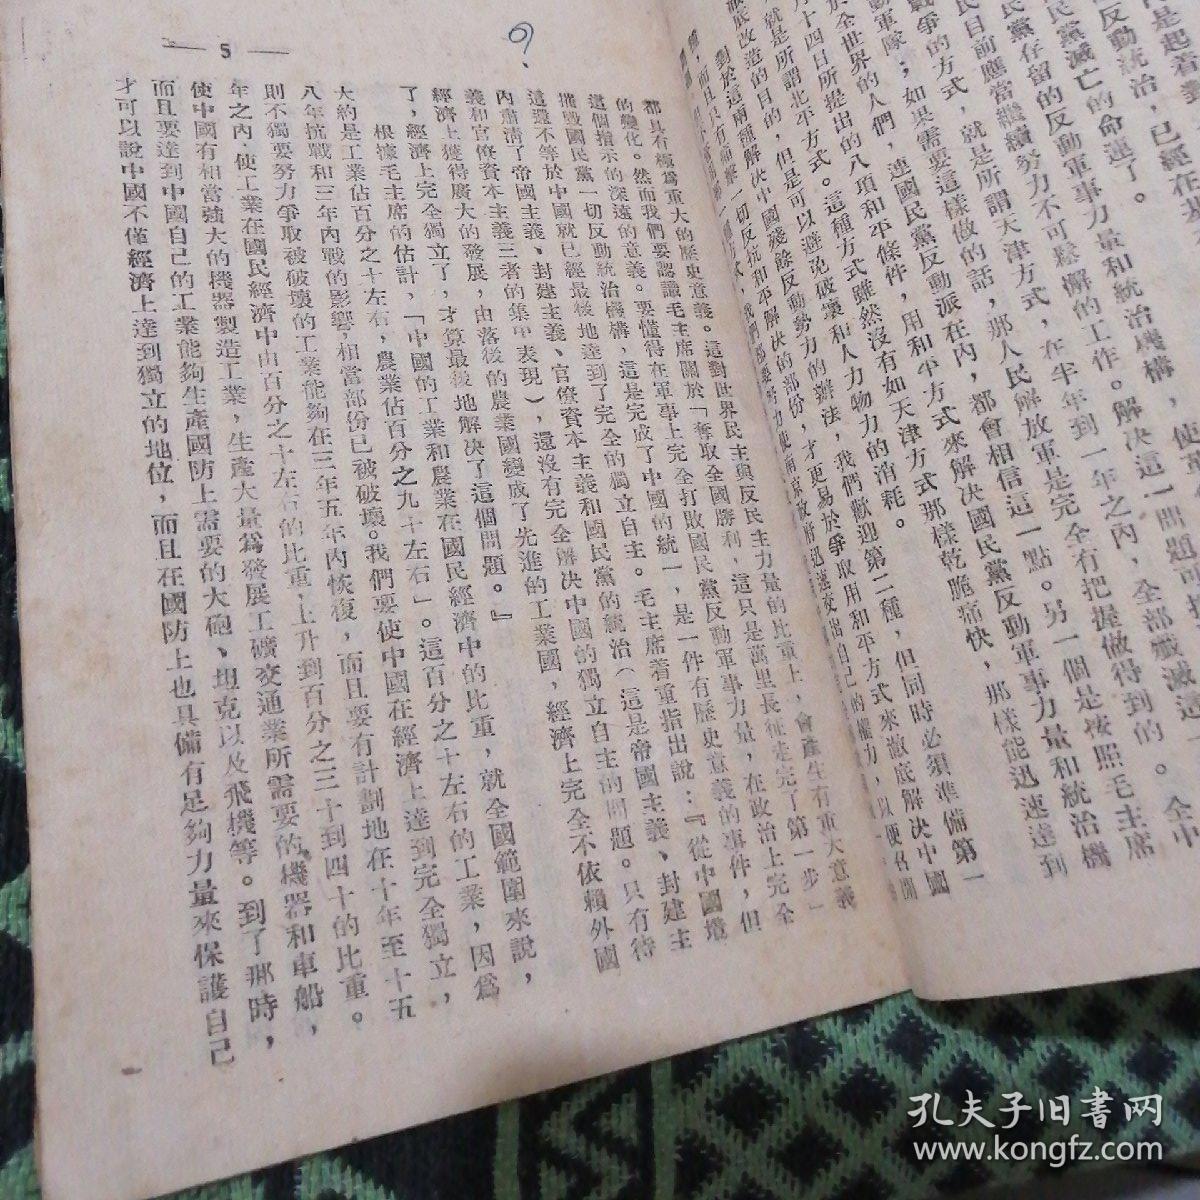 使
是起着
反動統治，已經在
民黨滅亡的命運了。
民黨存留的反動軍事力量和統治機構，
民目前應當繼續努力不可鬆懈的工作。解决這一問題可
戰爭的方式，就是所謂天津方式，在半年到一年之內，全部殲滅這
動軍隊；如果需要這樣做的話，那人民解放軍是完全有把握做得到的。全中
於全世界的人們，連國民黨反動派在內，都會相信這一點。另一個是按照毛主席
月十四日所提出的八項和平條件，用和平方式來解决國民黨反動軍事力量和統治機
就是所謂北平方式。這種方式雖然沒有如天津方式那樣乾脆痛快，那樣能迅速達到
徹底改造的目的，但是可以避免破壞和人力物力的消耗。
對於這兩種解决中國殘餘反動勢力的辦法，我們歡迎第二種，但同時必須準備第一
一切反抗和平解决的部份，才更易於爭取用和平方式來澈底解决中國
都具有極爲重大的歷史意義。這對世界民主與反民主力量的比重上，會產生有重大意義
的變化。然而我們要認識毛主席關於「奪取全國勝利，這只是萬里長征走完了第一步」
這個指示的深遠的意義。要懂得在軍事上完全打敗國民黨反動軍事力量，在政治上完全
摧毀國民黨一切反動統治機構，這是完成了中國的統一，是一件有歷史意義的事件，但
這還不等於中國就已經最後地達到了完全的獨立自主。毛主席着重指出說：『從中國境
內肅清了帝國主義、封建主義、官僚資本主義和國民黨的統治（這是帝國主義、封建主
義和官僚資本主義三者的集中表現），還沒有完全解决中國的獨立自主的問題。只有待
經濟上獲得廣大的發展，由落後的農業國變成了先進的工業國，經濟上完全不依賴外國
了，經濟上完全獨立了，才算最後地解决了這個問題。』
根據毛主席的估計，「中國的工業和農業在國民經濟中的比重，就全國範圍來說，
大約是工業佔百分之十左右，農業佔百分之九十左右」。這百分之十左右的工業，因爲
八年抗戰和三年內戰的影響，相當部份已被破壞。我們要使中國在經濟上達到完全獨立，
則不獨要努力爭取被破壞的工業能夠在三年五年內恢復，而且要有計劃地在十年至十五
年之內，使工業在國民經濟中由百分之十左右的比重，上升到百分之三十到四十的比重。
使中國有相當強大的機器製造工業，生產大量爲發展工礦交通業所需要的機器和車船，
而且要達到中國自己的工業能夠生產國防上需要的大砲、坦克以及飛機等。到了那時，
才可以說中國不僅經濟上達到獨立的地位，而且在國防上也具備有足夠力量來保護自己
— 5 —
孔夫子旧書网
www.kongfz.com